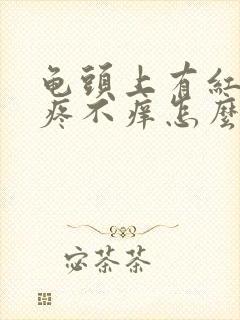 龟頭上有紅
疼不痒怎麼
宓茶茶